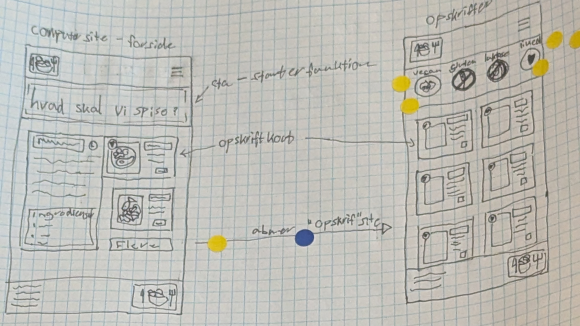 computer site - forside
hvad skal vi spise?
cta - starter funktion
opskrift kort
ingredienser
Flere
åbner "opskrift" site
opskrifter
vegan
gluten
laktose